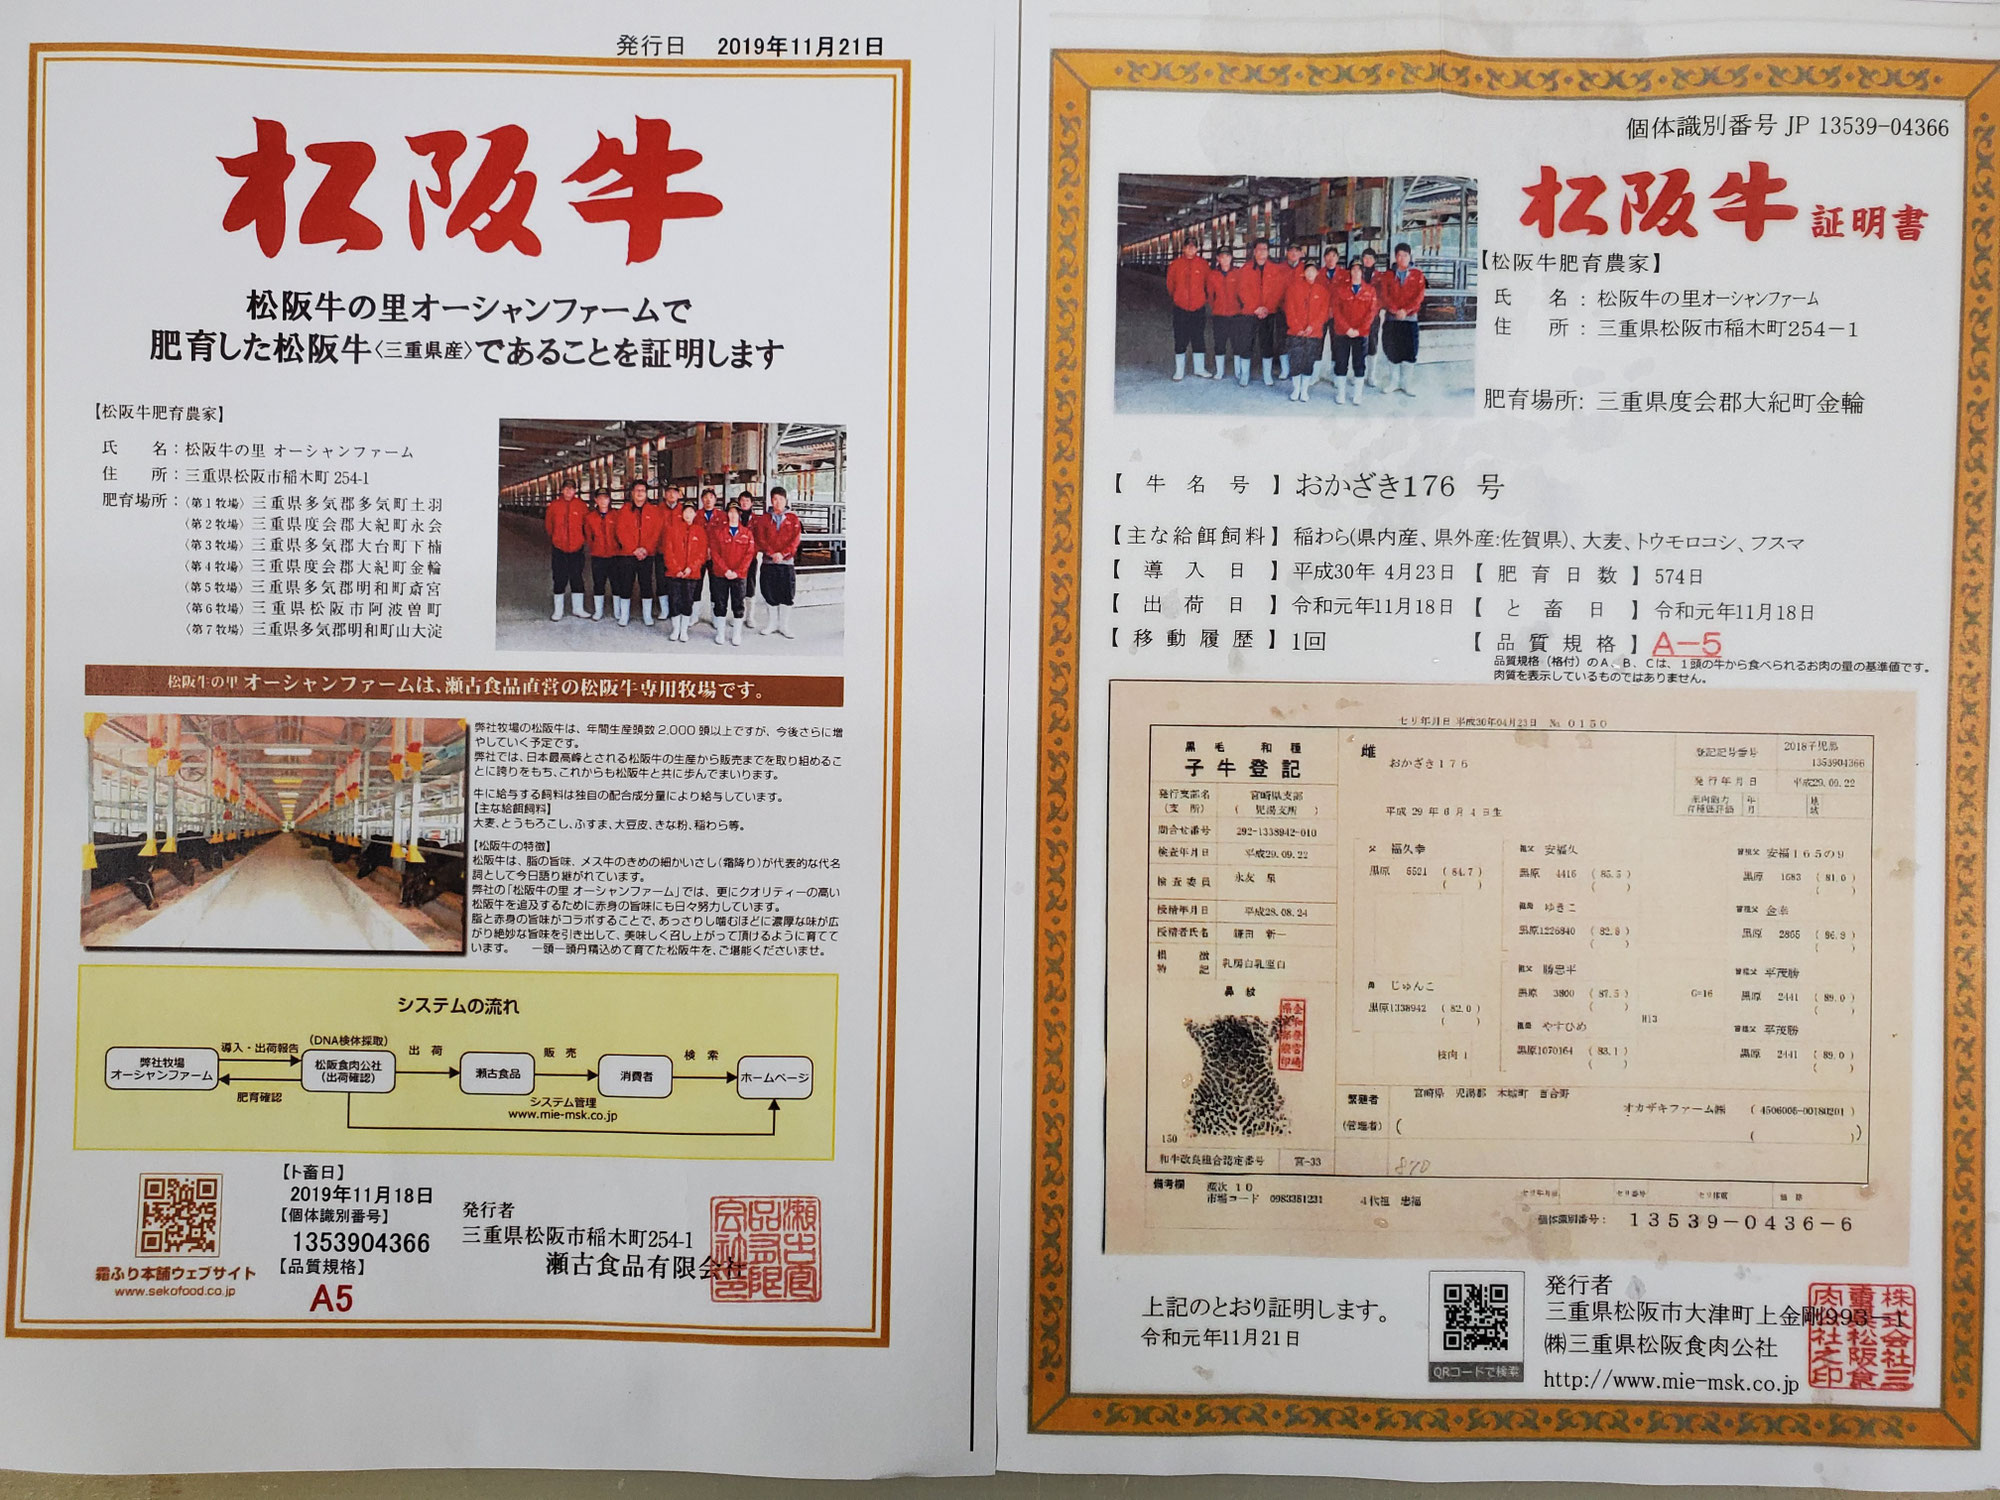 発行日 2019年11月21日
松阪牛
松阪牛の里オーシャンファームで
肥育した松阪牛〈三重県産〉であることを証明します
【松阪牛肥育農家】
氏 名：松阪牛の里 オーシャンファーム
住 所：三重県松阪市稲木町 254-1
肥育場所：〈第1牧場〉三重県多気郡多気町土羽
〈第2牧場〉三重県度会郡大紀町永会
〈第3牧場〉三重県多気郡大台町下楠
〈第4牧場〉三重県度会郡大紀町金輪
〈第5牧場〉三重県多気郡明和町斎宮
〈第6牧場〉三重県松阪市阿波曽町
〈第7牧場〉三重県多気郡明和町山大淀
松阪牛の里 オーシャンファームは、瀬古食品直営の松阪牛専用牧場です。
弊社牧場の松阪牛は、年間生産頭数2,000頭以上ですが、今後さらに増
やしていく予定です。
弊社では、日本最高峰とされる松阪牛の生産から販売までを取り組めるこ
とに誇りをもち、これからも松阪牛と共に歩んでまいります。
牛に給与する飼料は独自の配合成分量により給与しています。
【主な給餌飼料】
大麦、とうもろこし、ふすま、大豆皮、きな粉、稲わら等。
【松阪牛の特徴】
松阪牛は、脂の旨味、メス牛のきめの細かいさし(霜降り)が代表的な代名
詞として今日語り継がれています。
弊社の「松阪牛の里 オーシャンファーム」では、更にクオリティーの高い
松阪牛を追及するために赤身の旨味にも日々努力しています。
脂と赤身の旨味がコラボすることで、あっさりし噛むほどに濃厚な味が広
がり絶妙な旨味を引き出して、美味しく召し上がって頂けるように育てて
います。 一頭一頭丹精込めて育てた松阪牛を、ご堪能くださいませ。
システムの流れ
弊社牧場
オーシャンファーム
導入・出荷報告
肥育確認
(DNA検体採取)
松阪食肉公社
(出荷確認)
出荷
瀬古食品
販売
消費者
検索
ホームページ
システム管理
www.mie-msk.co.jp
霜ふり本舗ウェブサイト
www.sekofood.co.jp
【ト畜日】
2019年11月18日
【個体識別番号】
1353904366
【品質規格】
A5
発行者
三重県松阪市稲木町254-1
瀬古食品有限会社
個体識別番号 JP 13539-04366
松阪牛 証明書
【松阪牛肥育農家】
氏 名：松阪牛の里オーシャンファーム
住 所：三重県松阪市稲木町254－1
肥育場所: 三重県度会郡大紀町金輪
【牛名号】おかざき176 号
【主な給餌飼料】稲わら(県内産、県外産:佐賀県)、大麦、トウモロコシ、フスマ
【導入日】平成30年 4月23日 【肥育日数】574日
【出荷日】令和元年11月18日 【と畜日】令和元年11月18日
【移動履歴】1回 【品質規格】A－5
品質規格（格付）のA、B、Cは、1頭の牛から食べられるお肉の量の基準値です。
肉質を表示しているものではありません。
セリ年月日 平成30年04月23日 No 0150
黒毛和種
子牛登記
雌
おかざき176
平成 29 年 6 月 4 日生
登記記号番号
1353904366
発行年月日 平成29.09.22
発行支部名 宮崎県支部
(支所) (児湯支所)
問合せ番号 292-1338942-010
検査年月日 平成29.09.22
検査委員
授精年月日 平成28.08.24
授精者氏名 鎌田 新一
特記
鼻紋
150
和牛改良組合認定番号 宮-33
父 福久幸
黒原 5521 (84.7)
祖父 安福久
黒原 4416 (85.5)
曽祖父 安福165の9
黒原 1683 (81.0)
祖母 ゆきこ
黒原1226840 (82.9)
曽祖父 金幸
黒原 2865
母 じゅんこ
黒原1338942 (82.0)
祖父 勝忠平
黒原 3800 (87.5)
G=16
曽祖父 平茂勝
黒原 2441 (89.0)
祖母 やすひめ
黒原1070164 (83.1)
H13
曽祖父 平茂勝
黒原 2441 (89.0)
枝肉 1
繁殖者
(管理者)
宮崎県 児湯郡 木城町
オカザキファーム㈱ (4506005-00180201)
870
備考欄 産次 10
市場コード 0983351231
4代祖 忠福
個体識別番号： 13539-0436-6
上記のとおり証明します。
令和元年11月21日
QRコードで検索
発行者
三重県松阪市大津町上金剛993－1
㈱三重県松阪食肉公社
http://www.mie-msk.co.jp